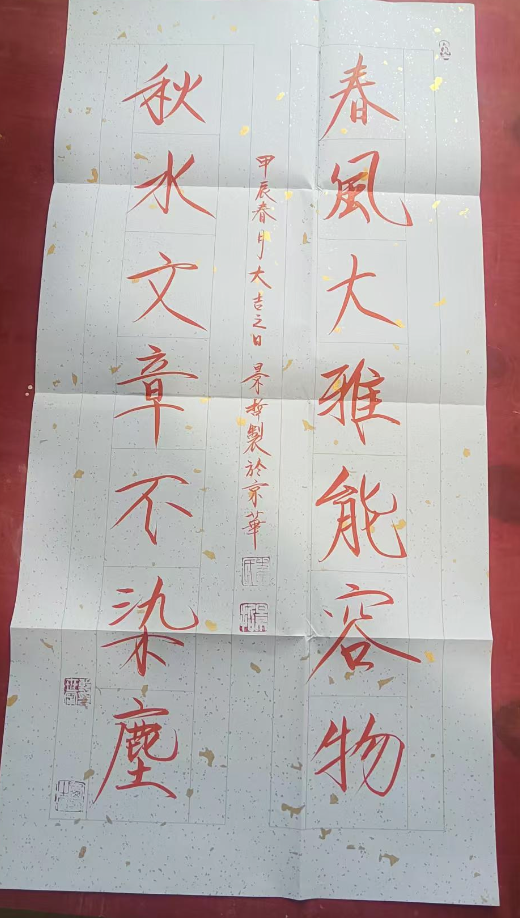 春風大雅能容物
甲辰春月大吉之日 景哲製於京華
秋水文章不染塵